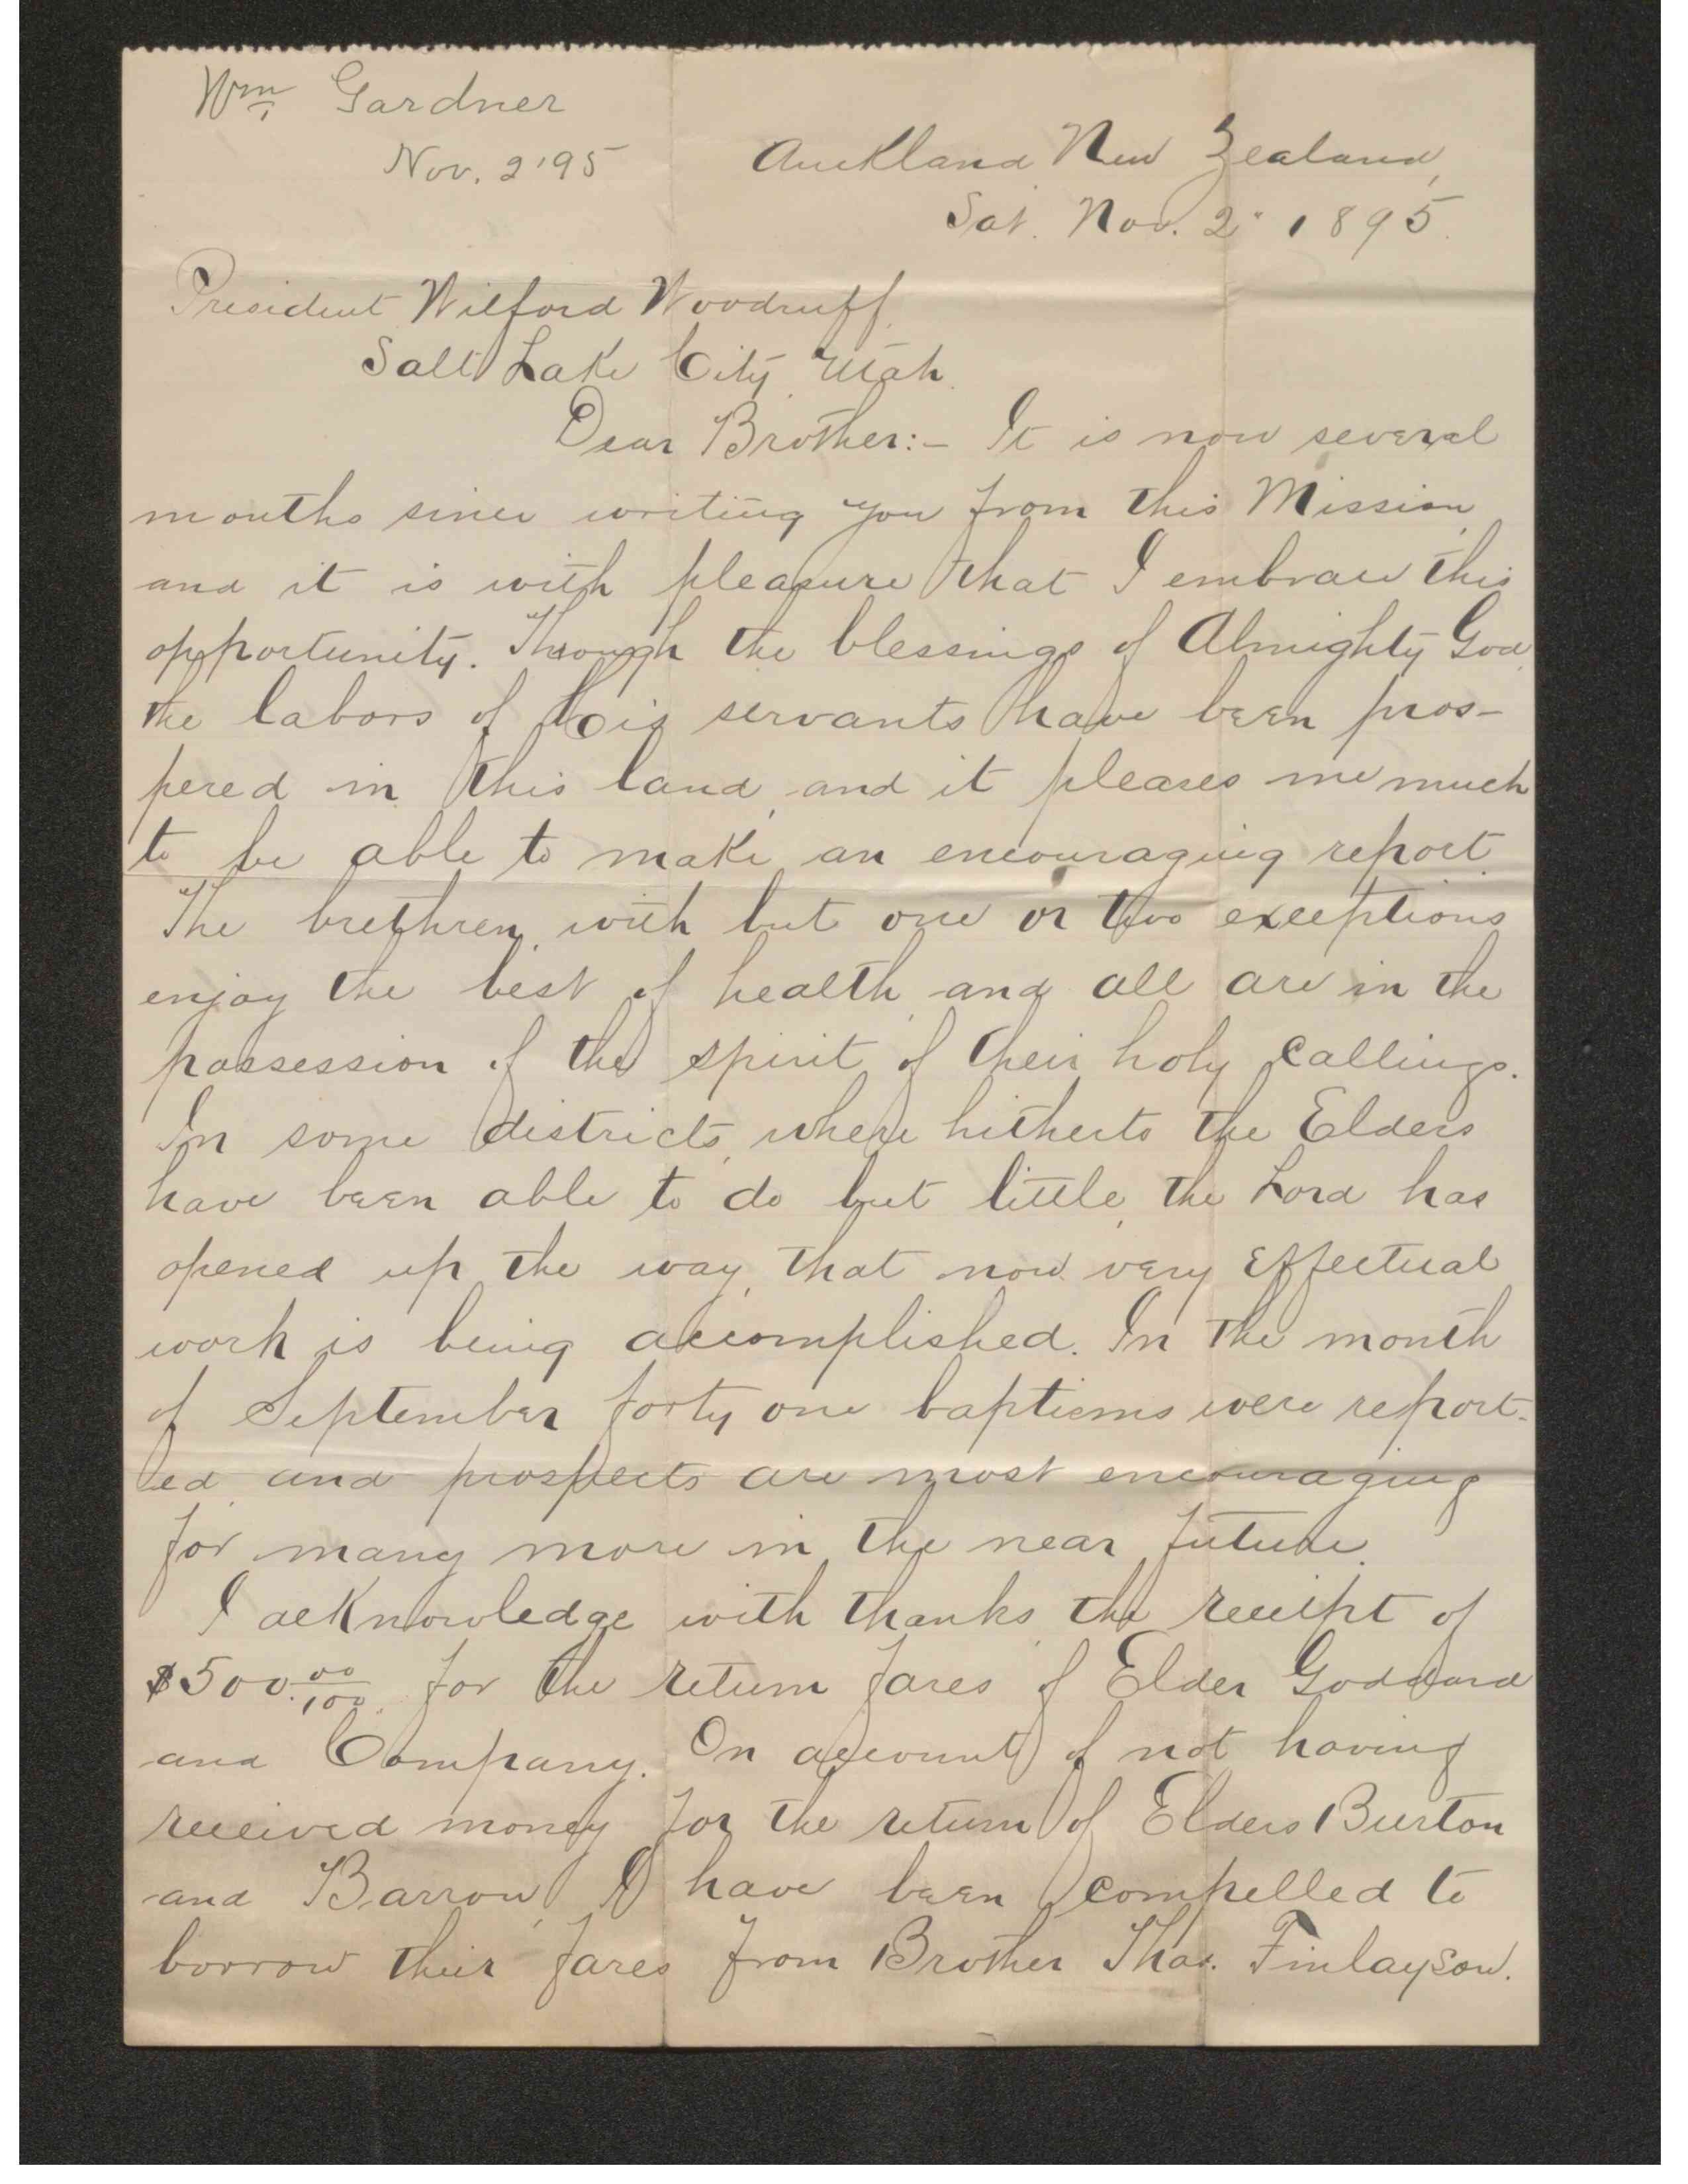 Wm Gardner
Nov. 2 '95
Auckland New Zealand,
Sat. Nov. 2" 1895.
President Wilford Woodruff,
Salt Lake City, Utah.
Dear Brother:- It is now several
months since writing you from this Mission,
and it is with pleasure that I embrace this
opportunity. Through the blessings of Almighty God,
the labors of His servants have been pros-
pered in this land, and it pleases me much
to be able to make an encouraging report.
The brethren, with but one or two exceptions
enjoy the best of health, and all are in the
possession of the spirit of their holy callings.
In some districts, where hitherto the Elders
have been able to do but little, the Lord has
opened up the way, that now very effectual
work is being accomplished. In the month
of September forty one baptisms were report-
ed, and prospects are most encouraging
for many more in the near future.
I acknowledge with thanks the receipt of
$500.00/100, for the return fares of Elder Goddard
and Company. On account of not having
received money for the return of Elders Burton
and Barrow, I have been compelled to
borrow their fares from Brother Thos. Finlayson.